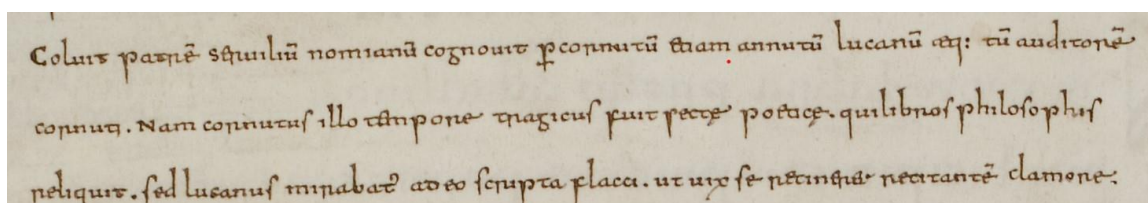 Coluit patrē seruiliū nomianū cognouit p̱cornutū etiam annutū lucanū eq: tū auditorē
cornuti. Nam cornutus illo tempore tragicus fuit sectę poeticę. qui libros philosophis
reliquit. sed lucanus mirabat̉ adeo scripta flacci. ut uix se retineret recitantē clamore;